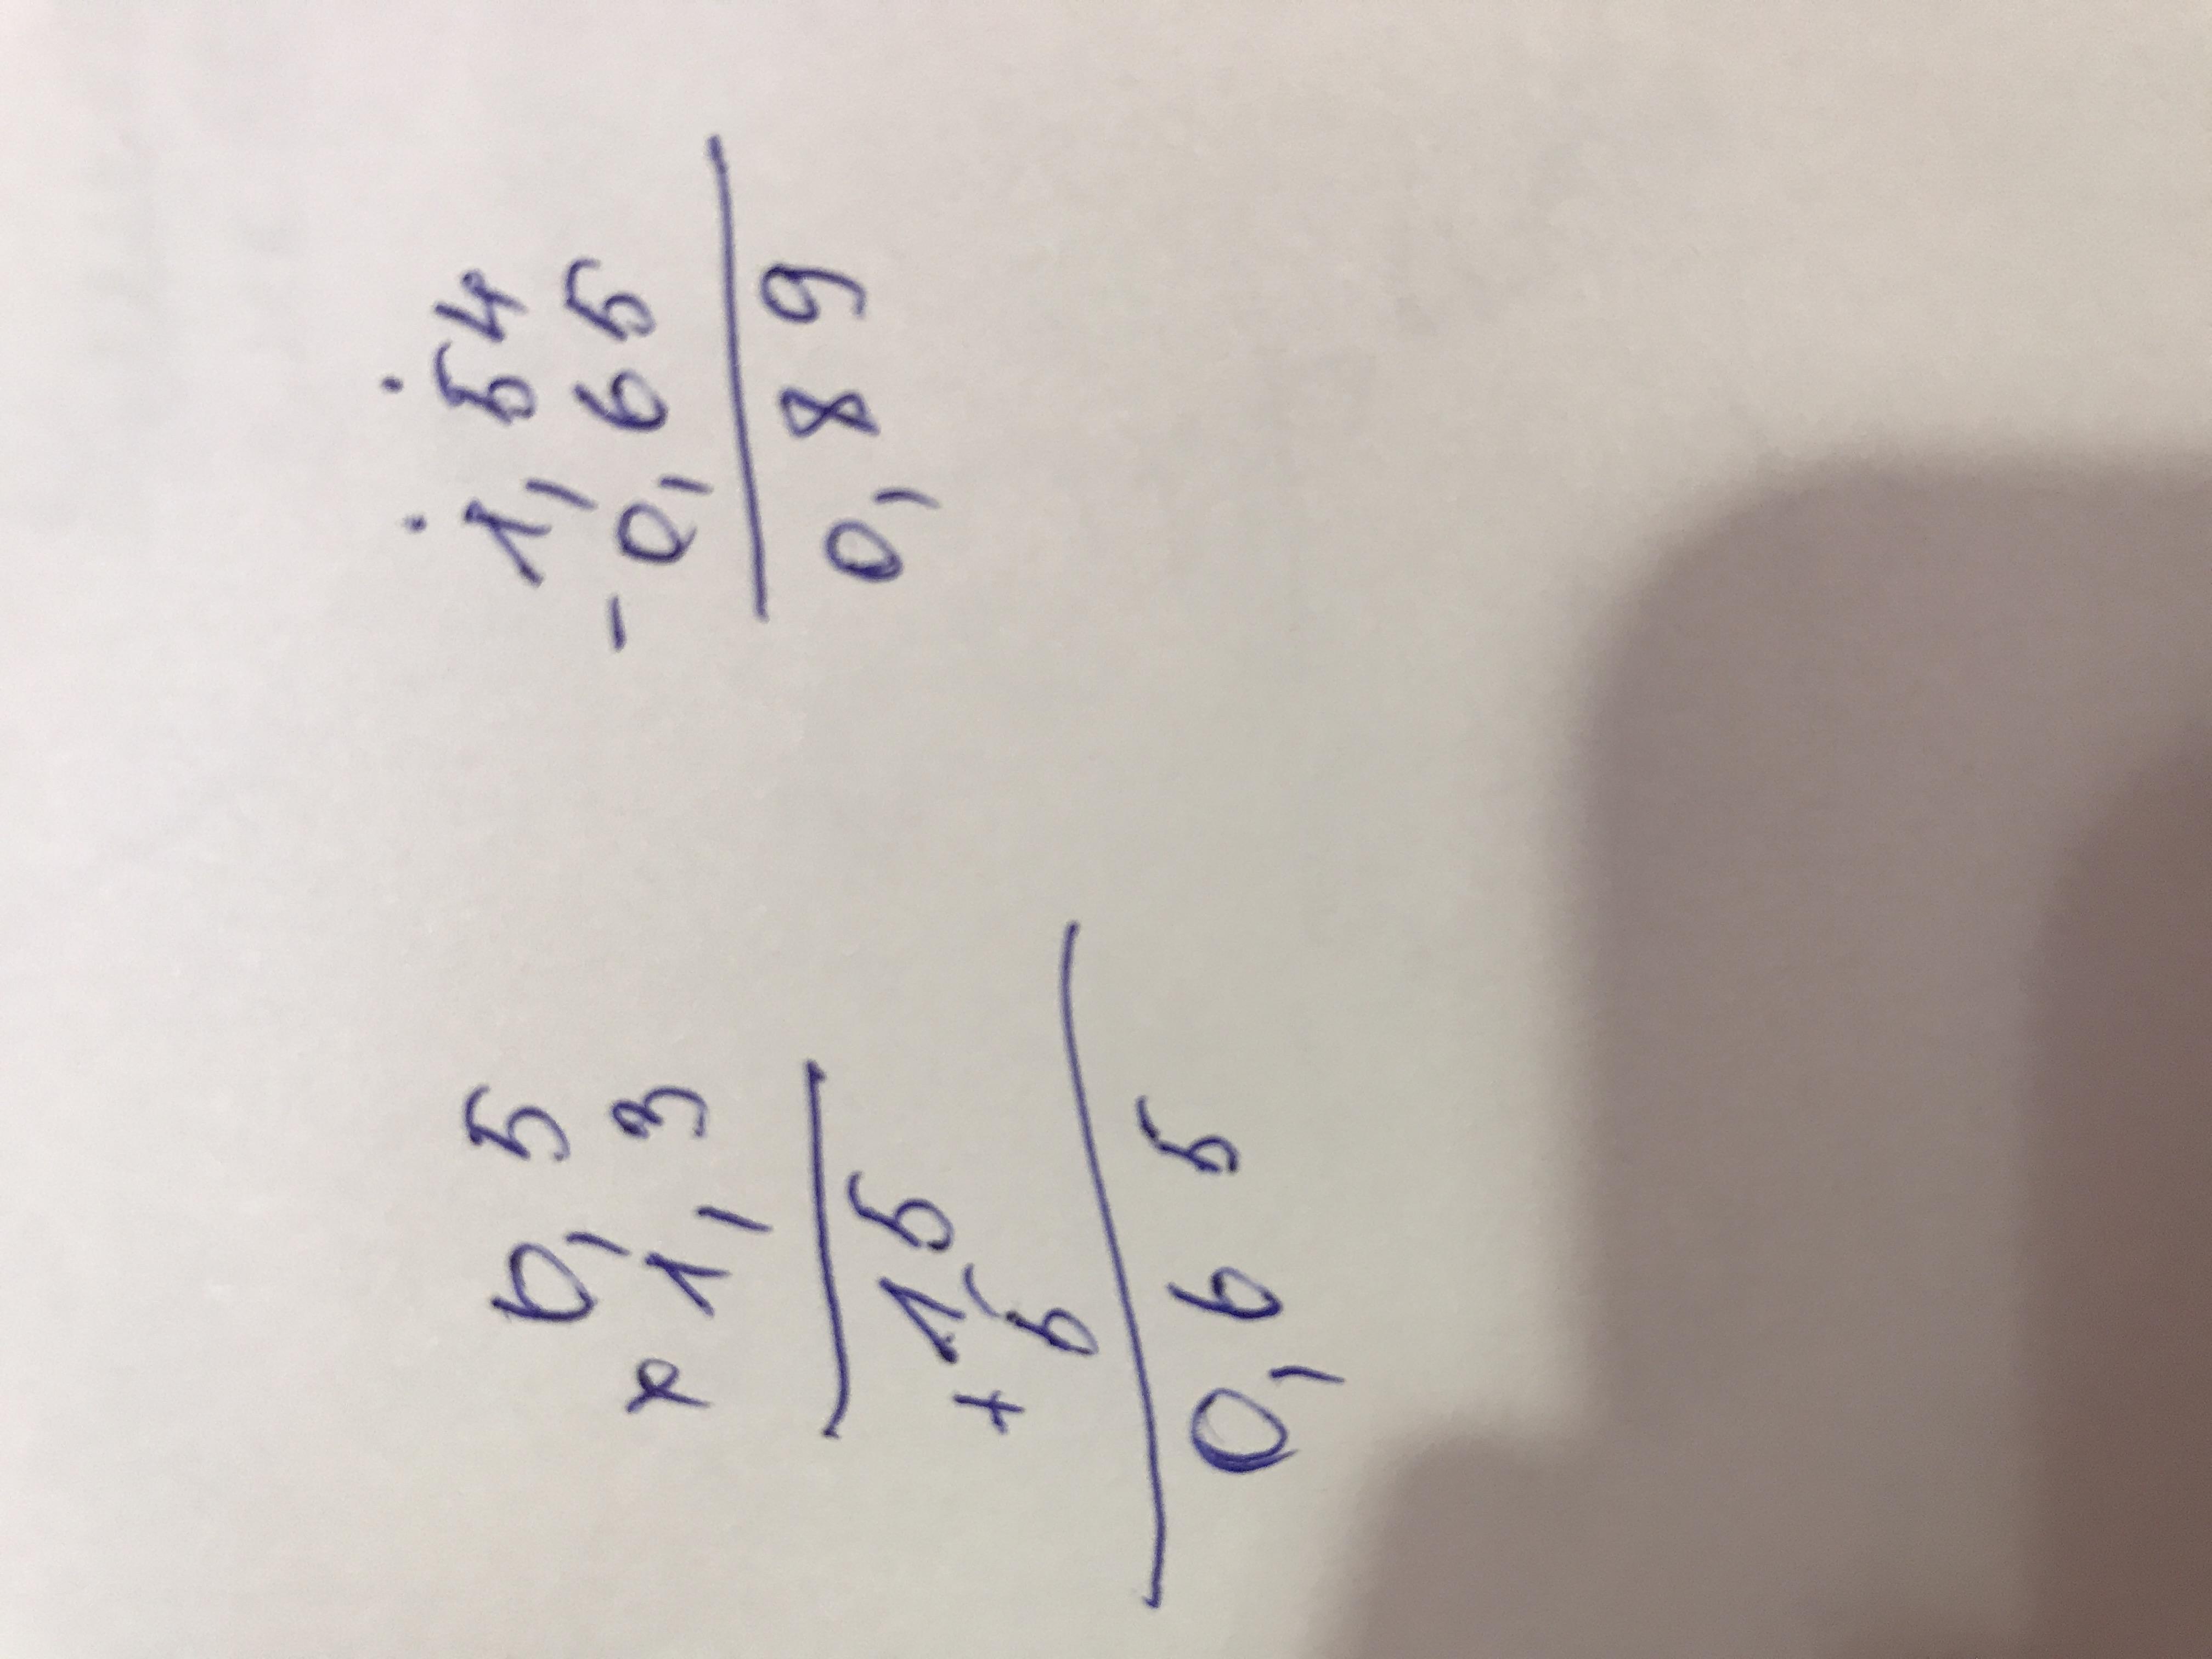 0,5
× 1,3
15
+ 5
0,65
1,54
- 0,65
0,89